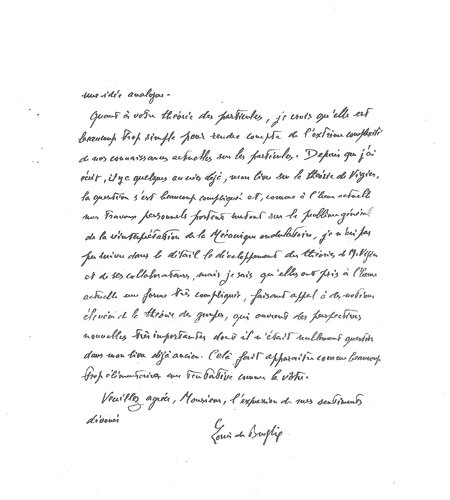 une idée analogue.
Quant à votre théorie des particules, je crois qu'elle est
beaucoup trop simple pour rendre compte de l'extrême complexité
de nos connaissances actuelles sur les particules. Depuis que j'ai
écrit, il y a quelques années déjà, mon livre sur la théorie de Vigier,
la question s'est beaucoup compliquée et, comme à l'heure actuelle
mes travaux personnels portent surtout sur le problème général
de la réinterprétation de la Mécanique ondulatoire, je n'ai pas
pu suivre dans le détail le développement des théories de M. Vigier
et de ses collaborateurs, mais je sais qu'elles ont pris à l'heure
actuelle une forme très compliquée, faisant appel à des notions
élevées de la théorie des groupes, qui ouvrent des perspectives
nouvelles très importantes dont il n'était nullement question
dans mon livre déjà ancien. Cela fait apparaître comme beaucoup
trop élémentaire une tentative comme la vôtre.
Veuillez agréer, Monsieur, l'expression de mes sentiments
dévoués
Louis de Broglie